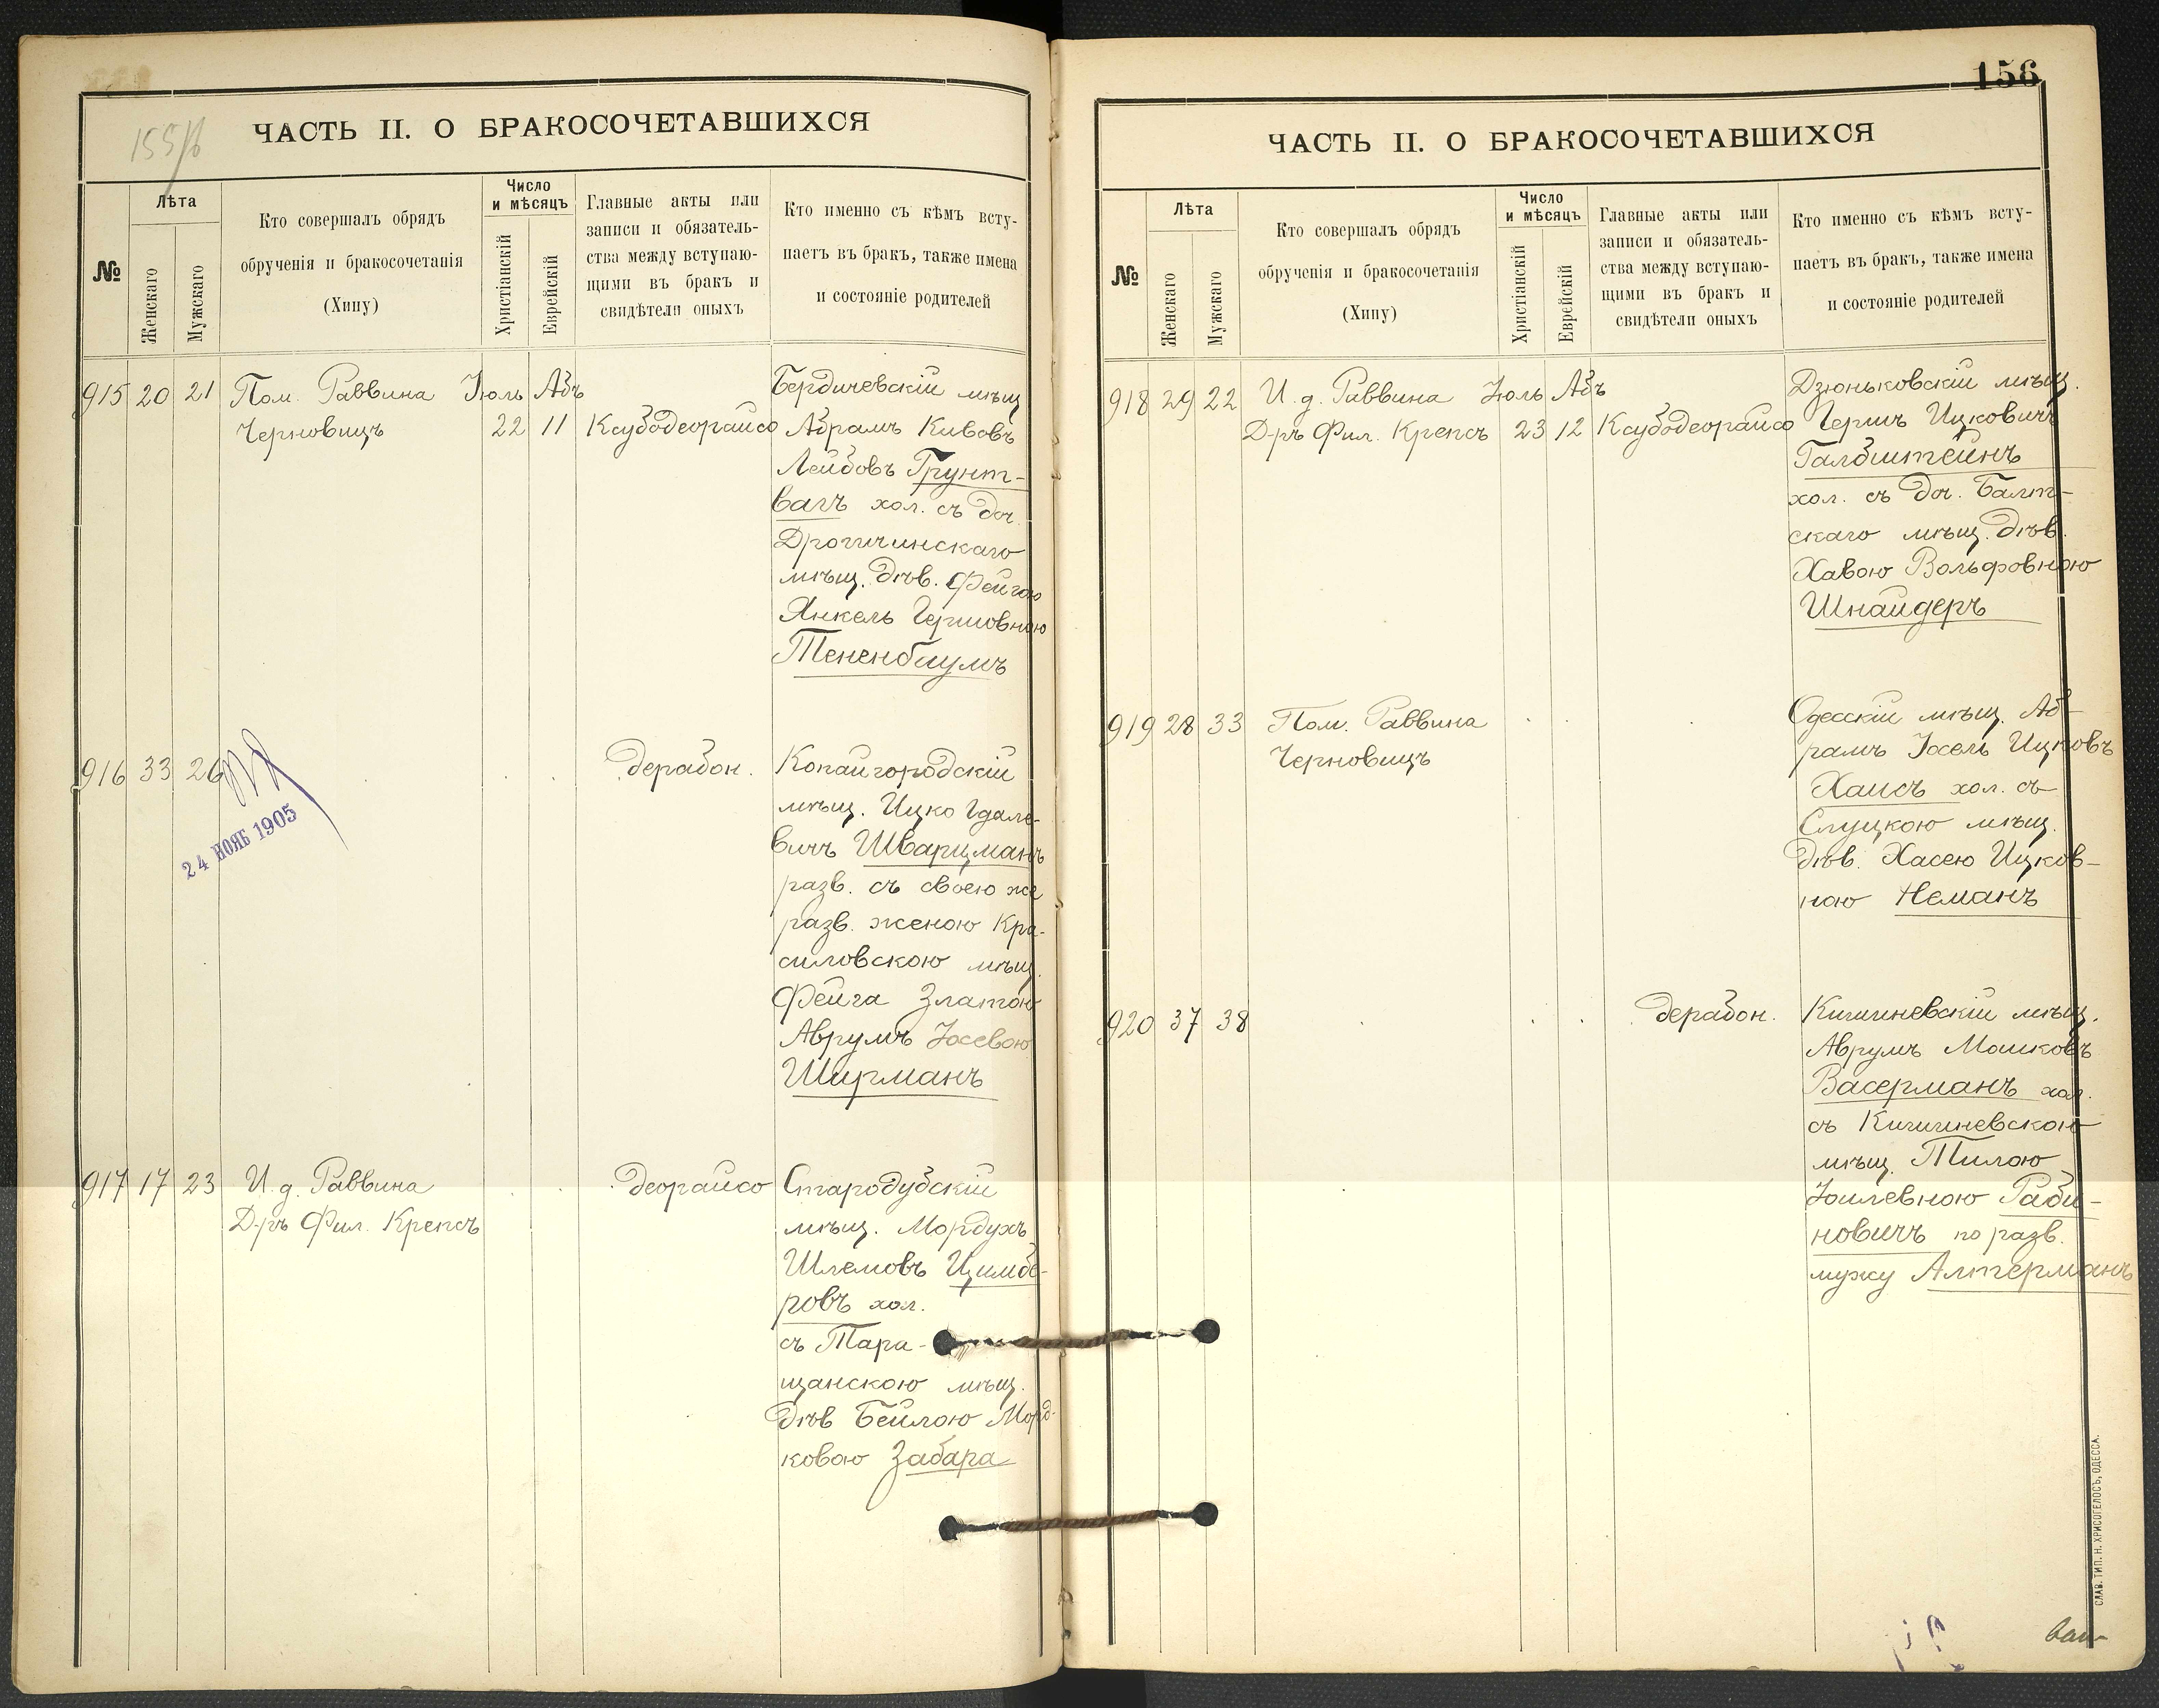 155/б
ЧАСТЬ II. О БРАКОСОЧЕТАВШИХСЯ
№
Лѣта
Женскаго
Мужскаго
Кто совершалъ обрядъ
обрученія и бракосочетанія
(Хипу)
Число
и мѣсяцъ
Христіанскій
Еврейскій
Главные акты или
записи и обязатель-
ства между вступаю-
щими въ бракъ и
свидѣтели оныхъ
Кто именно съ кѣмъ всту-
паетъ въ бракъ, также имена
и состояніе родителей
915 20 21 Пом. Раввина Іюль Абъ Бердичевскій мѣщ
Черновицъ 22 11 Ксубодеорайсо Абрамъ Кивовъ
Лейбовъ Грунт-
вагъ хол. съ доч.
Дрогичинскаго
мѣщ. дѣв. Фейгою
Янкель Гершовною
Тененбаумъ
916 33 26 дерабон. Копайгородскій
мѣщ. Ицко Гдале-
вичъ Шварцманъ
разв. съ своею же
разв. женою Кра-
силовскою мѣщ.
Фейга Златою
Аврумъ Іосевою
Ширманъ
24 НОЯБ 1905
917 17 23 И. д. Раввина деорайсо Стародубскій
Д-ръ Фил. Крепсъ мѣщ. Мордухъ
Шлемовъ Цимбе-
ровъ хол.
съ Тара-
щанскою мѣщ.
дѣв Бейлою Морд-
ковою Забара
156
ЧАСТЬ II. О БРАКОСОЧЕТАВШИХСЯ
№
Лѣта
Женскаго
Мужскаго
Кто совершалъ обрядъ
обрученія и бракосочетанія
(Хипу)
Число
и мѣсяцъ
Христіанскій
Еврейскій
Главные акты или
записи и обязатель-
ства между вступаю-
щими въ бракъ и
свидѣтели оныхъ
Кто именно съ кѣмъ всту-
паетъ въ бракъ, также имена
и состояніе родителей
918 29 22 И. д. Раввина Іюль Абъ Дзюньковскій мѣщ.
Д-ръ Фил. Крепсъ 23 12 Ксубодеорайсо Гершъ Ицковичъ
Галбштейнъ
хол. съ доч. Балт-
скаго мѣщ. дѣв.
Хавою Вольфовною
Шнайдеръ
919 28 33 Пом. Раввина Одесскій мѣщ. Аб-
Черновицъ рамъ Іосель Ицковъ
Хаисъ хол. съ
Слуцкою мѣщ.
дѣв. Хасею Ицков-
ною Неманъ
920 37 38 дерабон. Кишиневскій мѣщ.
Аврумъ Мошковъ
Васерманъ хол.
съ Кишиневскою
мѣщ. Тилою
Іоилевною Раби-
новичъ по разв.
мужу Алтерманъ
СЛАВ. ТИП. Н. ХРИСОГЕЛОСЪ, ОДЕССА.